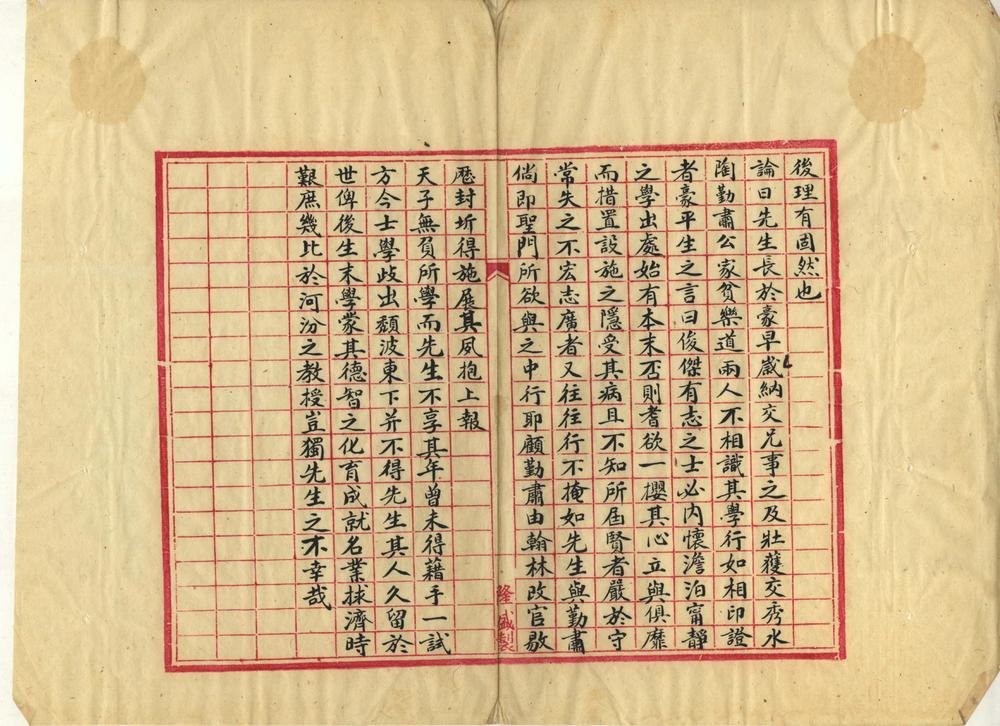 後理有固然也
論曰先生長於豪早歲納交兄事之及壯獲交秀水
陶勤肅公家貧樂道兩人不相識其學行如相印證
者豪平生之言曰俊傑有志之士必內懷澹泊甯靜
之學出處始有本末否則耆欲一櫻其心立與俱靡
而措置設施之隱受其病且不知所屆賢者嚴於守
常失之不宏志廣者又往往行不掩如先生與勤肅
倘即聖門所欲與之中行耶顧勤肅由翰林改官敭
歷封圻得施展其夙抱上報
天子無負所學而先生不享其年曾未得藉手一試
方今士學歧出頹波東下并不得先生其人久留於
世俾後生末學蒙其德智之化育成就名業捄濟時
艱庶幾比於河汾之教授豈獨先生之不幸哉
隆盛製